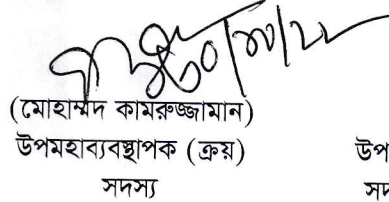 (মোহাম্মদ কামরুজ্জামান)
উপমহাব্যবস্থাপক (ক্রয়)
উপ
সদস্য
সদ